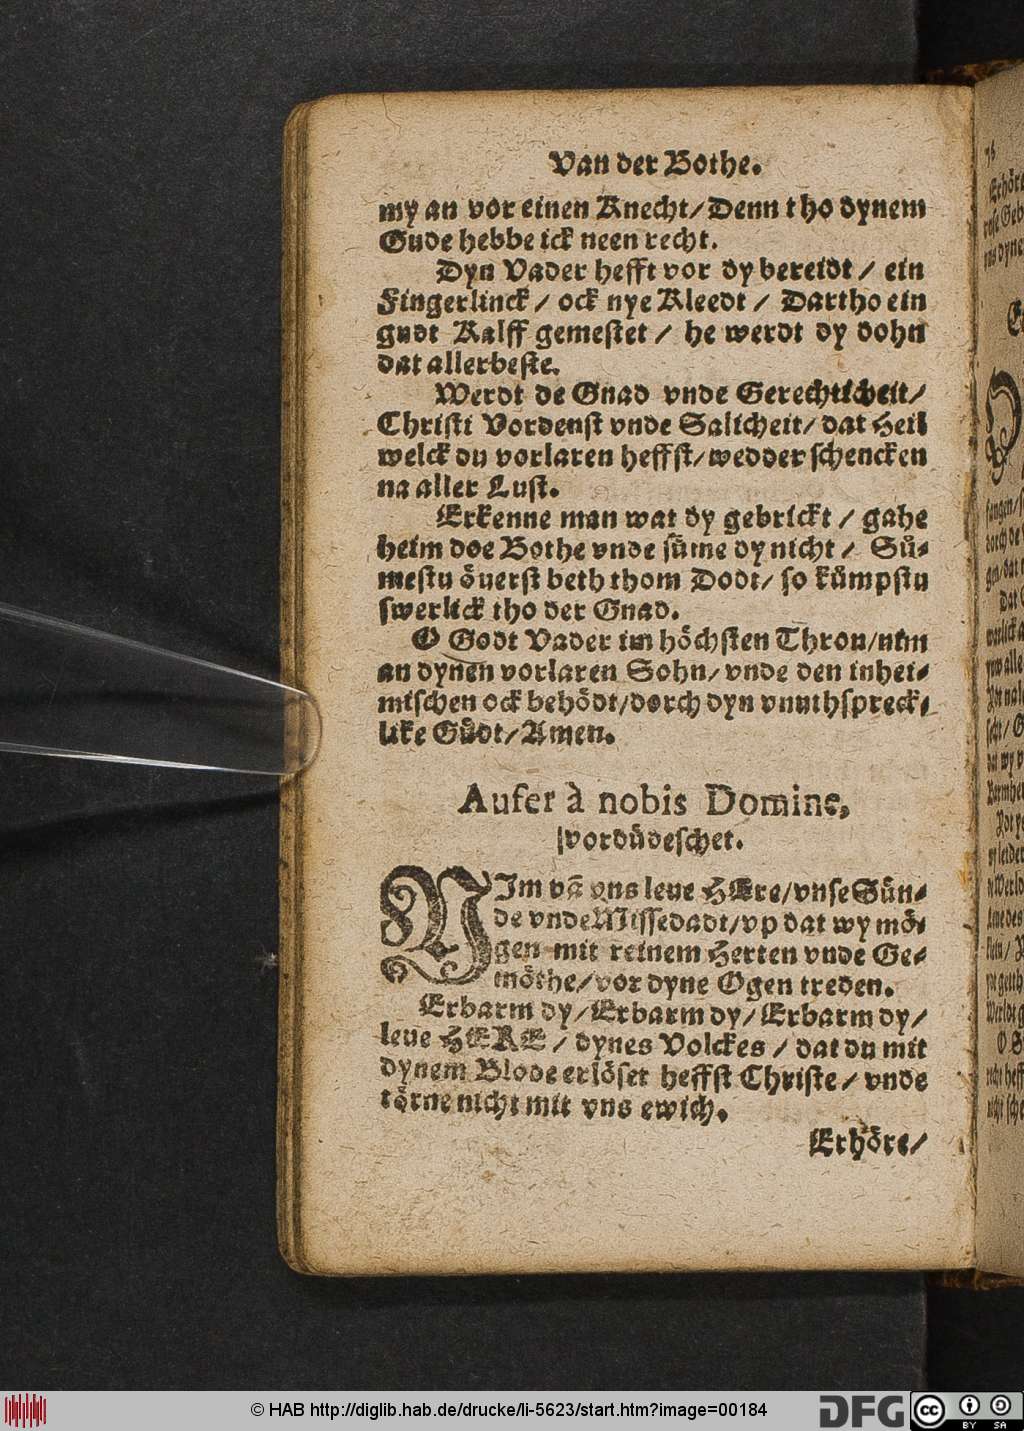 Van der Bothe.
my an vor einen Knecht/ Denn tho dynem
Gude hebbe ick neen recht.
Dyn Vader hefft vor dy bereidt / ein
Fingerlinck / ock nye Kleedt / Dartho ein
gudt Kalff gemestet / he werdt dy dohn
dat allerbeste.
Werdt de Gnad vnde Gerechticheit/
Christi Vordenst vnde Salicheit/ dat Heil
welck du vorlaren heffst/ wedder schencken
na aller Lust.
Erkenne man wat dy gebrickt / gahe
heim doe Bothe vnde süme dy nicht / Sü-
mestu öuerst beth thom Dodt/ so kümpstu
swerlick tho der Gnad.
O Godt Vader im höchsten Thron/ nim
an dynen vorlaren Sohn/ vnde den inhei-
mischen ock behödt/ dorch dyn vnuthspreck-
like Güdt/ Amen.
Aufer à nobis Domine,
vordüdeschet.
NIm vā vns leue HEre/ vnse Sün-
de vnde Missedadt/ vp dat wy mö-
gen mit reinem Herten vnde Ge-
möthe/ vor dyne Ogen treden.
Erbarm dy/ Erbarm dy/ Erbarm dy/
leue HERE / dynes Volckes / dat du mit
dynem Blode erlöset heffst Christe/ vnde
törne nicht mit vns ewich.
Erhöre/
© HAB http://diglib.hab.de/drucke/li-5623/start.htm?image=00184
DFG
cc
BY SA